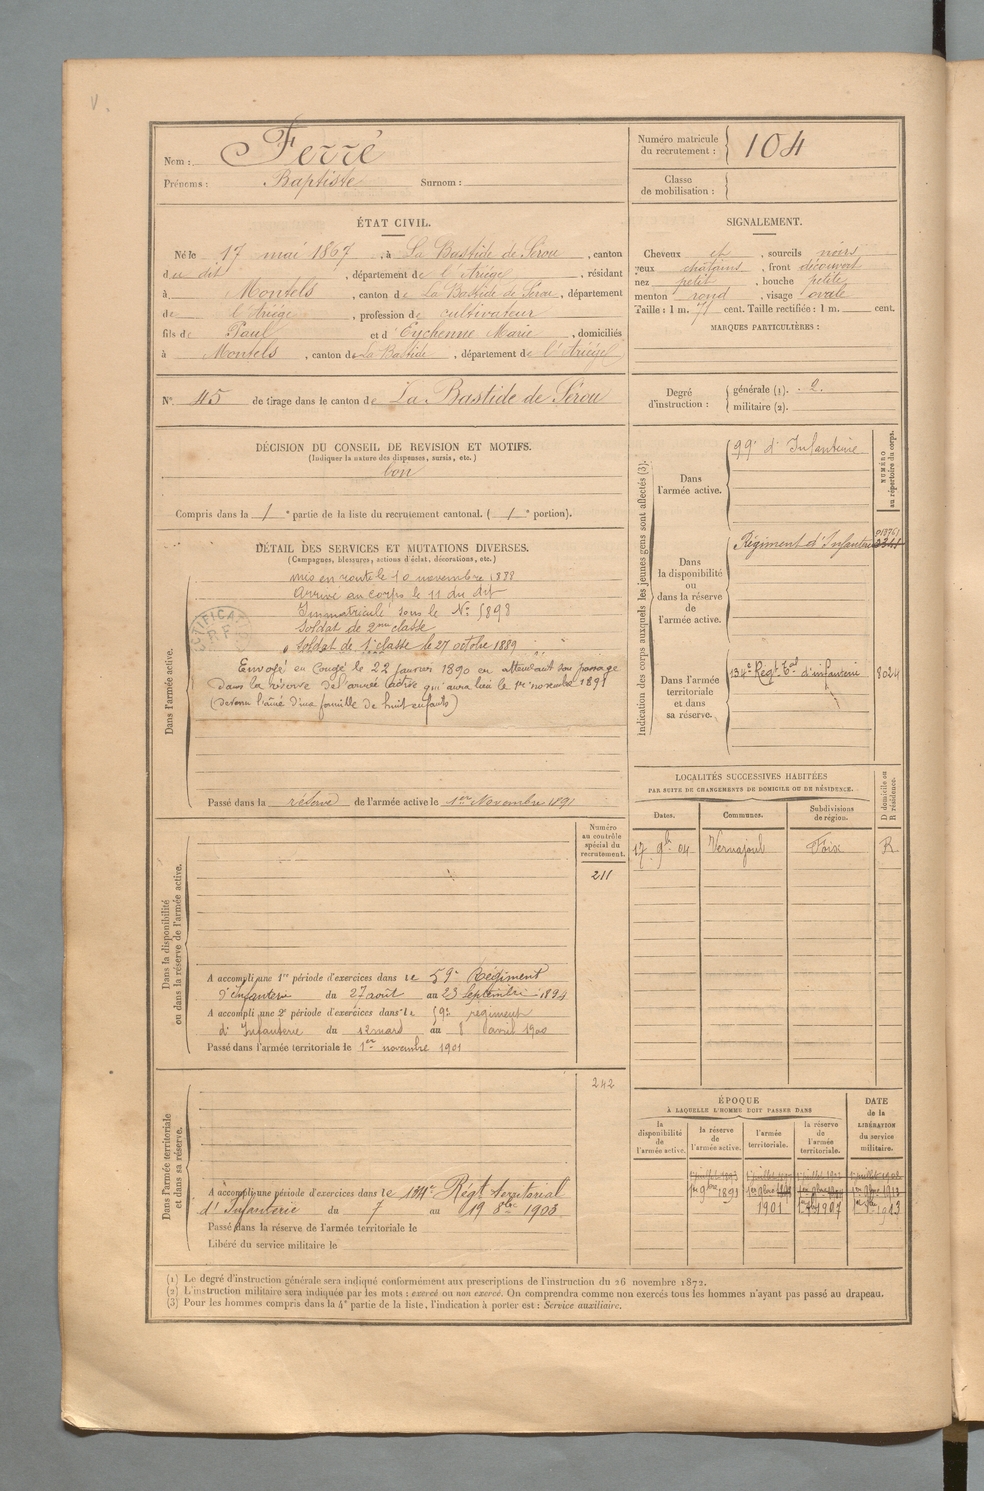 V.
Nom : Ferré
Prénoms : Baptiste Surnom :
Numéro matricule du recrutement : 104
Classe de mobilisation :
ÉTAT CIVIL.
Né le 17 mai 1867, à La Bastide de Sérou, canton
du dit, département de l'Ariège, résidant
à Montels, canton de La Bastide de Sérou, département
de l'Ariège, profession de cultivateur
fils de Paul et d'Eychenne Marie, domiciliés
à Montels, canton de La Bastide, département de l'Ariège
SIGNALEMENT.
Cheveux et, sourcils noirs
yeux châtains, front découvert
nez petit, bouche petite
menton rond, visage ovale
Taille : 1 m. 71 cent. Taille rectifiée : 1 m. cent.
MARQUES PARTICULIÈRES :
N° 45 de tirage dans le canton de La Bastide de Sérou
Degré d'instruction : générale (1). 2.
militaire (2).
DÉCISION DU CONSEIL DE REVISION ET MOTIFS.
(Indiquer la nature des dispenses, sursis, etc.)
bon
Compris dans la 1e partie de la liste du recrutement cantonal. (1e portion).
DÉTAIL DES SERVICES ET MUTATIONS DIVERSES.
(Campagnes, blessures, actions d'éclat, décorations, etc.)
Dans l'armée active.
mis en route le 10 novembre 1888
Arrivé au corps le 11 du dit
Immatriculé sous le N° 5898
Soldat de 2me classe
Soldat de 1e classe le 27 octobre 1889
Envoyé en Congé le 22 Janvier 1890 en attendant son passage
dans la réserve de l'armée active qui aura lieu le 1er novembre 1891
(devenu l'aîné d'une famille de huit enfants)
Passé dans la réserve de l'armée active le 1er Novembre 1891
Indication des corps auxquels les jeunes gens sont affectés (3).
NUMÉRO au répertoire du corps.
Dans l'armée active.
99e d'Infanterie
Dans la disponibilité ou dans la réserve de l'armée active.
Régiment d'Infanterie
Dans l'armée territoriale et dans sa réserve.
134e Regt Tal d'infanterie 8024
LOCALITÉS SUCCESSIVES HABITÉES
PAR SUITE DE CHANGEMENTS DE DOMICILE OU DE RÉSIDENCE.
D domicile ou R résidence.
Dates. Communes. Subdivisions de région.
17 9bre 04 Vernajoul Foix R
Dans la disponibilité ou dans la réserve de l'armée active.
Numéro au contrôle spécial du recrutement.
211
A accompli une 1re période d'exercices dans le 59e Régiment
d'infanterie du 27 août au 23 Septembre 1894
A accompli une 2e période d'exercices dans le 59e régiment
d'Infanterie du 12 mars au 8 avril 1900
Passé dans l'armée territoriale le 1er novembre 1901
Dans l'armée territoriale et dans sa réserve.
242
A accompli une période d'exercices dans le Régt territorial
d'Infanterie du 7 au 19 8bre 1903
Passé dans la réserve de l'armée territoriale le
Libéré du service militaire le
ÉPOQUE
À LAQUELLE L'HOMME DOIT PASSER DANS
la disponibilité de l'armée active.
la réserve de l'armée active.
l'armée territoriale.
la réserve de l'armée territoriale.
DATE de la LIBÉRATION du service militaire.
1er 9bre 1891
1901
1907
1913
(1) Le degré d'instruction générale sera indiqué conformément aux prescriptions de l'instruction du 26 novembre 1872.
(2) L'instruction militaire sera indiquée par les mots : exercé ou non exercé. On comprendra comme non exercés tous les hommes n'ayant pas passé au drapeau.
(3) Pour les hommes compris dans la 4e partie de la liste, l'indication à porter est : Service auxiliaire.